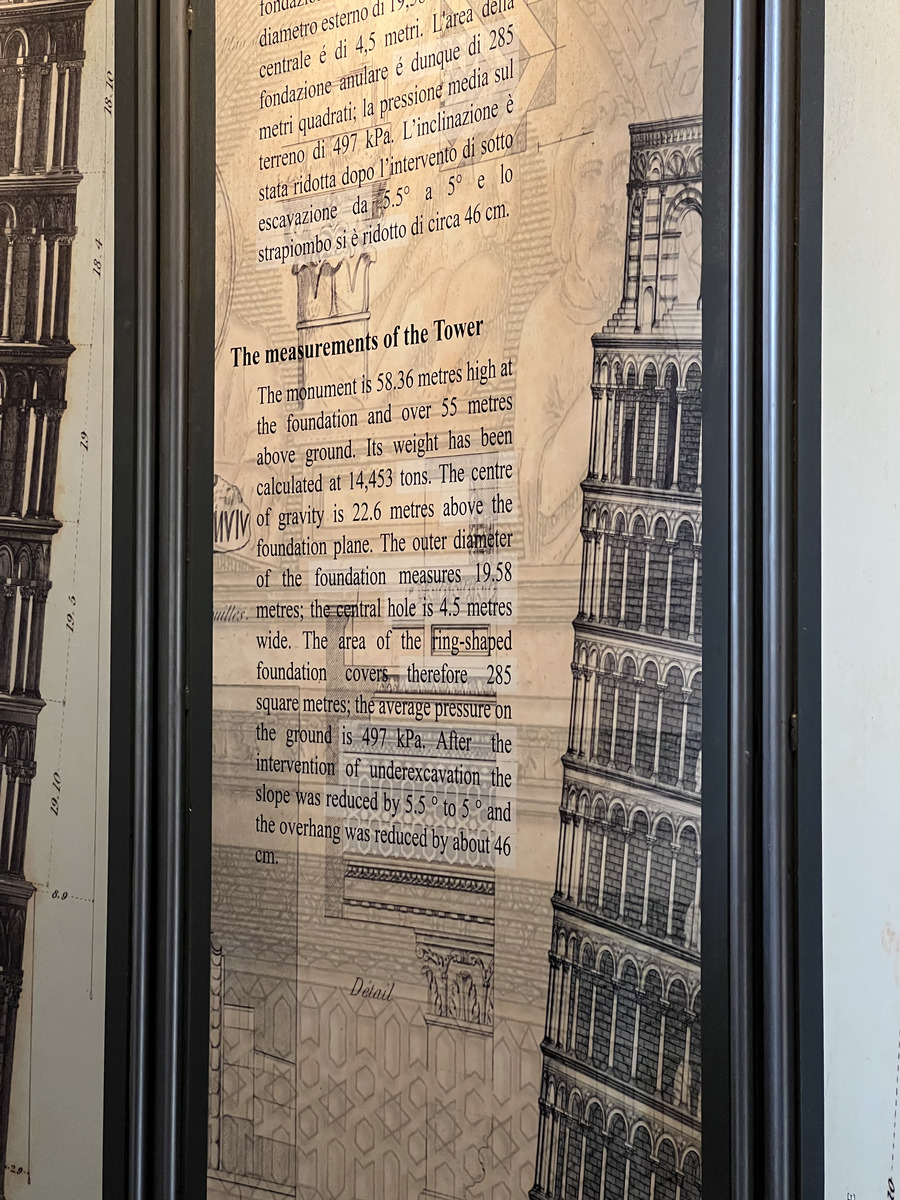 diametro esterno di
centrale é di 4,5 metri. L'area della
fondazione anulare é dunque di 285
metri quadrati; la pressione media sul
terreno di 497 kPa. L'inclinazione è
stata ridotta dopo l'intervento di sotto
escavazione da 5.5° a 5° e lo
strapiombo si è ridotto di circa 46 cm.
The measurements of the Tower
The monument is 58.36 metres high at
the foundation and over 55 metres
above ground. Its weight has been
calculated at 14,453 tons. The centre
of gravity is 22.6 metres above the
foundation plane. The outer diameter
of the foundation measures 19.58
metres; the central hole is 4.5 metres
wide. The area of the ring-shaped
foundation covers therefore 285
square metres; the average pressure on
the ground is 497 kPa. After the
intervention of underexcavation the
slope was reduced by 5.5 ° to 5 ° and
the overhang was reduced by about 46
cm.
Detail
18. 10
18. 4
19
19. 5
19. 10
8. 9